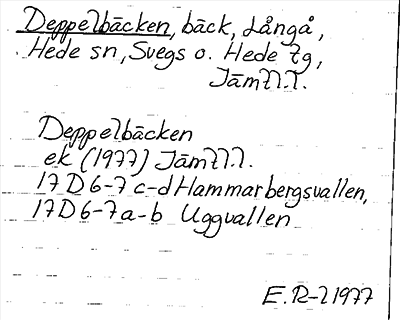 Deppelbäcken, bäck, Långå,
Hede sn, Svegs o. Hede tg,
Jämtl.l.
Deppelbäcken
ek (1977) Jämtl.l.
17 D 6-7 c-d Hammarbergsvallen,
17 D 6-7 a-b Uggvallen
E.R-l 1977